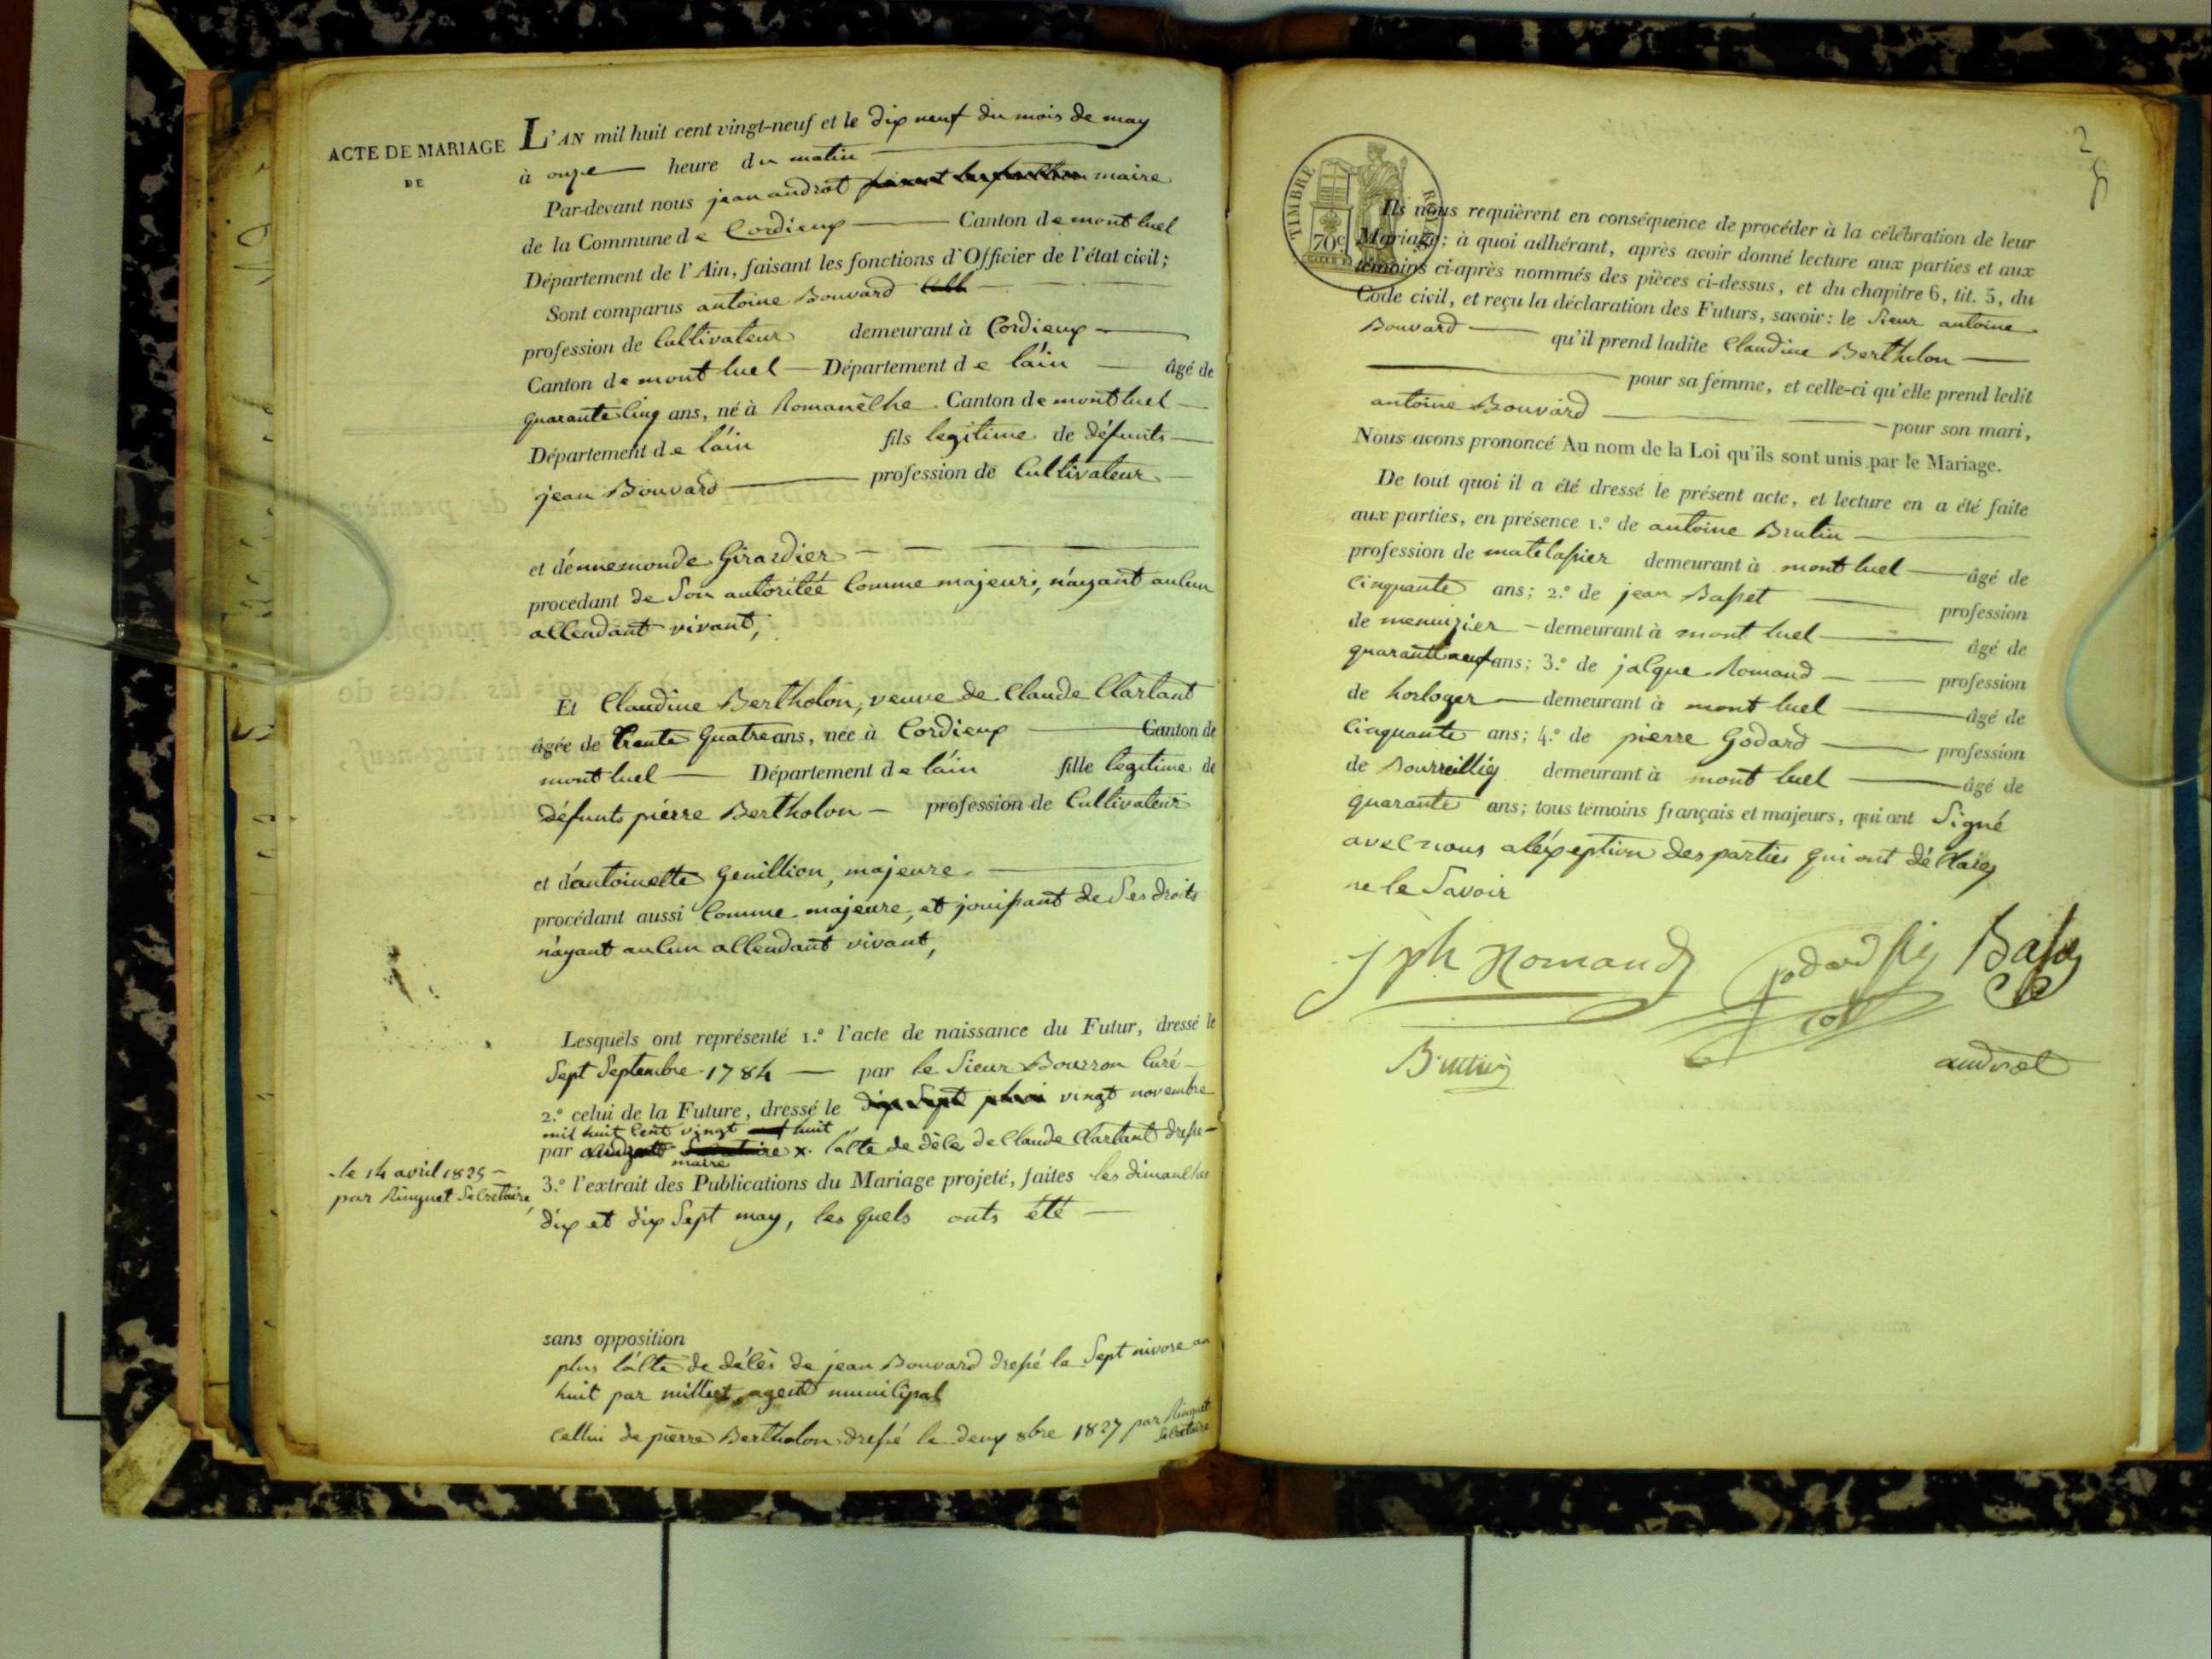 ACTE DE MARIAGE
DE
L'AN mil huit cent vingt-neuf et le dix neuf du mois de may
à onze heure du matin
Par-devant nous jean androt maire
de la Commune de Cordieux Canton de mont luel
Département de l'Ain, faisant les fonctions d'Officier de l'état civil;
Sont comparus antoine Bouvard
profession de Cultivateur demeurant à Cordieux
Canton de mont luel Département de láin âgé de
quarante Cinq ans, né à Romanèche Canton de mont luel
Département de láin fils legitime de défunts
jean Bouvard profession de Cultivateur
et dénnemonde Girardier
procédant de Son autoritée Comme majeur, n'ayant aucun
assendant vivant,
Et Claudine Bertholon, veuve de Claude Clartant
âgée de trente Quatre ans, née à Cordieux Canton de
mont luel Département de láin fille legitime de
défunts piérre Bertholon profession de Cultivateur
et d'antoinette Genillion, majeure
procédant aussi Comme majeure, et jouissant de Ses droits
n'ayant aucun assendant vivant,
Lesquels ont représenté 1.º l'acte de naissance du Futur, dressé le
Sept Septembre 1784 par le Sieur Bourron Curé
2.º celui de la Future, dressé le vingt novembre
mil huit Cent vingt huit
par maire x. l'acte de décé de Claude Clartant dressé
le 14 avril 1825
par Ringuet Secretaire,
3.º l'extrait des Publications du Mariage projeté, faites les dimanches
dix et dix Sept may, les quels onts été
sans opposition
plus l'acte de décès de jean Bouvard dressé le Sept nivose an
huit par milliet, agent municipal
Cellui de pierre Bertholon dressé le deux 8bre 1827 par Ringuet
Secretaire
2
TIMBRE ROYAL
70c
Ils nous requièrent en conséquence de procéder à la célébration de leur
Mariage; à quoi adhérant, après avoir donné lecture aux parties et aux
témoins ci-après nommés des pièces ci-dessus, et du chapitre 6, tit. 5, du
Code civil, et reçu la déclaration des Futurs, savoir: le Sieur antoine
Bouvard qu'il prend ladite Claudine Bertholon
pour sa femme, et celle-ci qu'elle prend ledit
antoine Bouvard pour son mari,
Nous avons prononcé Au nom de la Loi qu'ils sont unis par le Mariage.
De tout quoi il a été dressé le présent acte, et lecture en a été faite
aux parties, en présence 1.º de antoine Brutin
profession de matelassier demeurant à mont luel âgé de
Cinquante ans; 2.º de jean Basset profession
de menuizier demeurant à mont luel âgé de
quarante neuf ans; 3.º de jacque Romand profession
de horloger demeurant à mont luel âgé de
Cinquante ans; 4.º de pierre Godard profession
de demeurant à mont luel âgé de
quarante ans; tous témoins français et majeurs, qui ont Signé
avec nous a léxeption des parties qui ont déclarés
ne le Savoir
Jph Romand
Basset
Brutin
androt